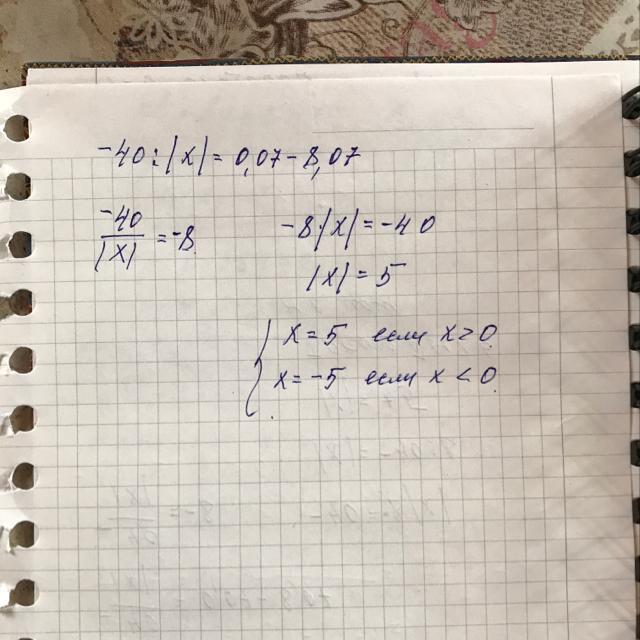 -40:|x|=0,07-8,07
-40/|x|=-8
-8|x|=-40
|x|=5
x=5 если x>0
x=-5 если x<0